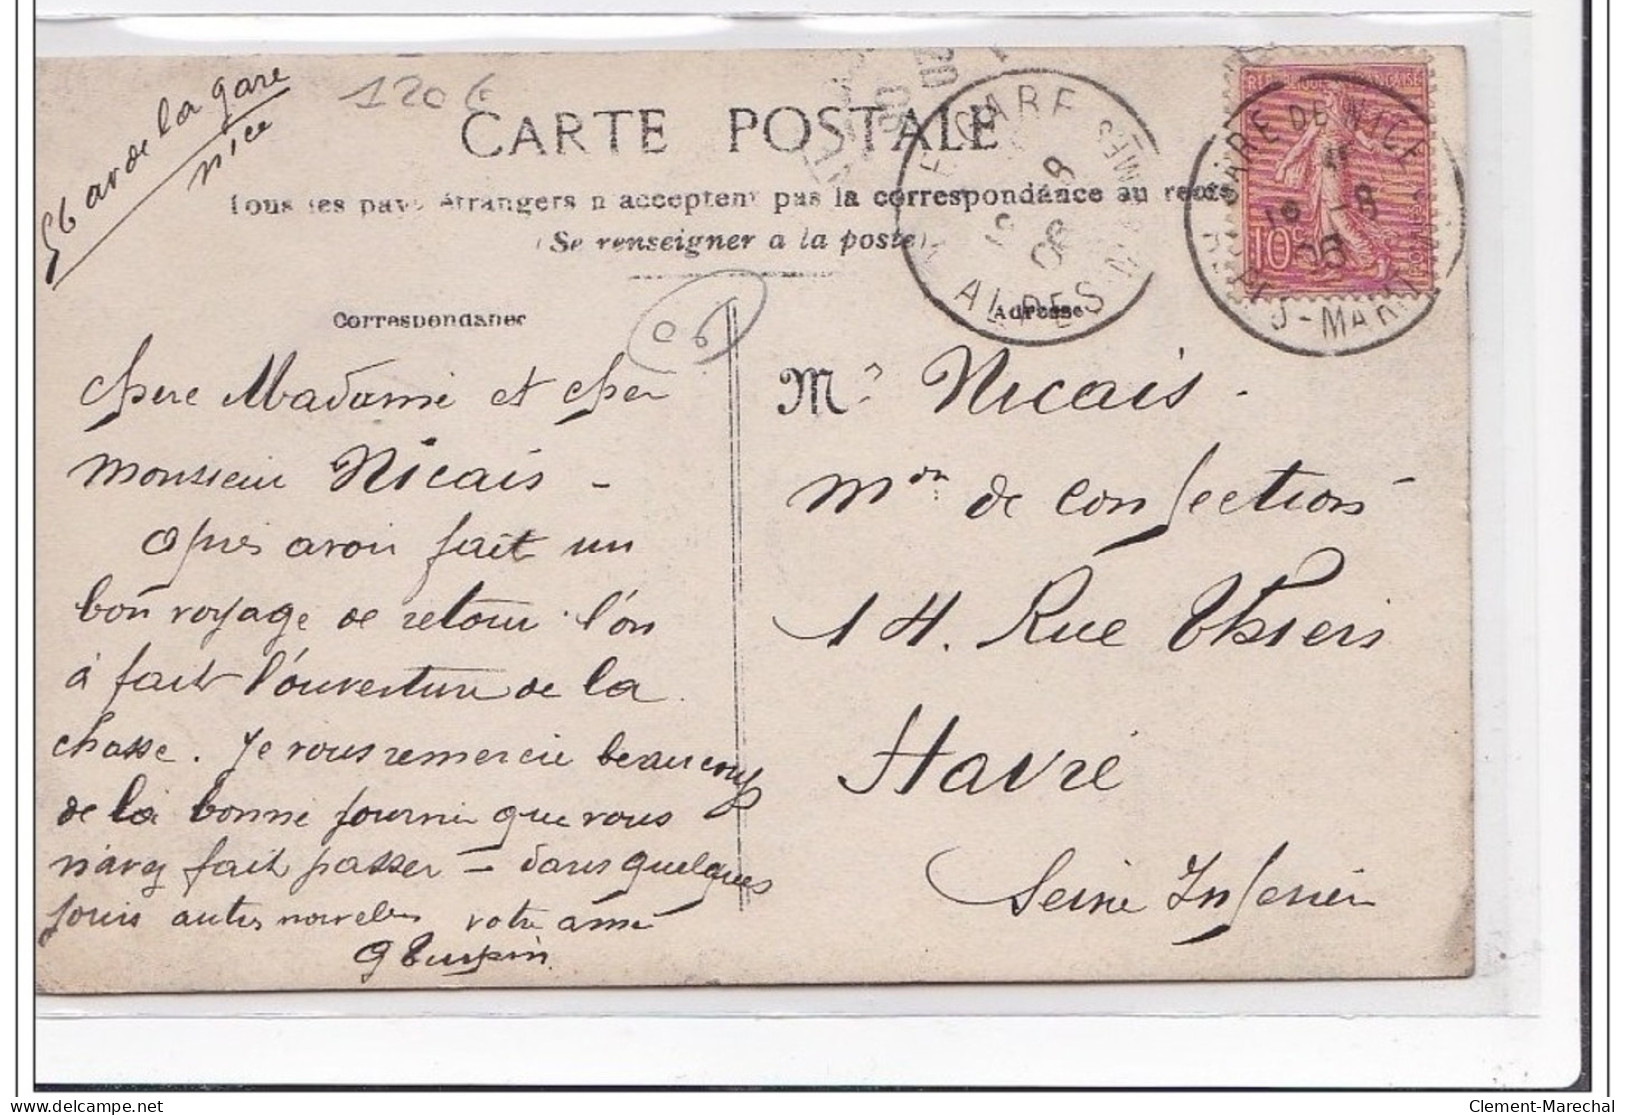 56 av de la gare
nice
120 €
CARTE POSTALE
Tous les pays étrangers n'acceptent pas la correspondance au recto
(Se renseigner à la poste)
Correspondance
Adresse
C6
GARE
ALPES
GARE DE NICE
18 -8
06
RÉPUBLIQUE FRANÇAISE
10c
POSTES
chere Madame et cher
monsieur Nicais -
apres avoir fait un
bon voyage de retour l'on
à fait l'ouverture de la
chasse. Je vous remercie beaucoup
de la bonne journé que vous
n'avez fait passer - dans quelques
jours autres nouvelles votre ami
G Turpin
Mr Nicais -
Mdn de confections
14. Rue Thiers
Havre
Seine Inferieur
Clement-Marechal